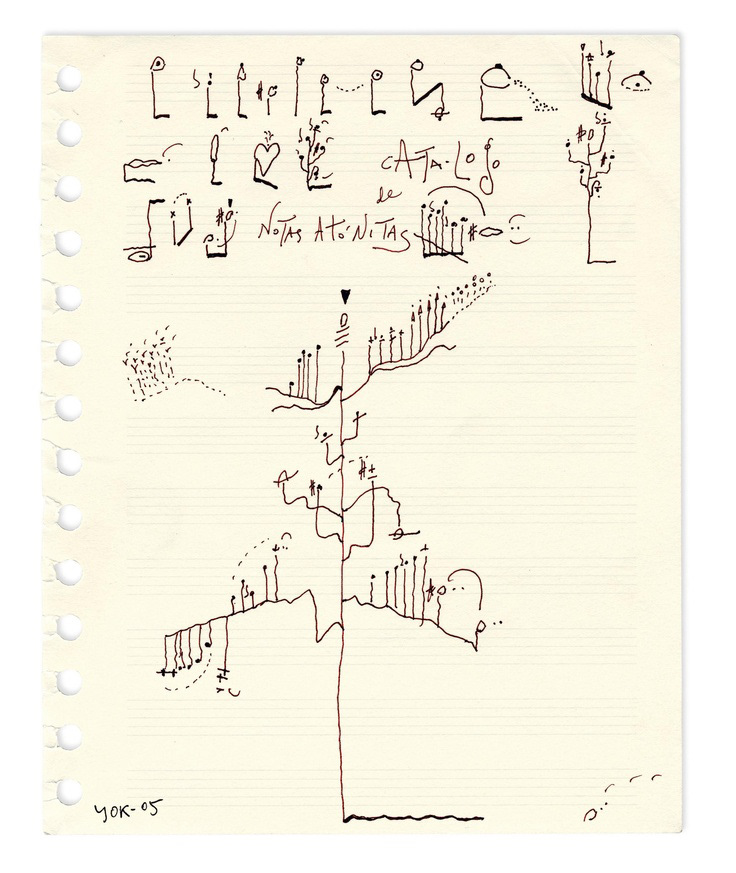 CATALOGO
de
NOTAS ATÓNITAS
YOK-05